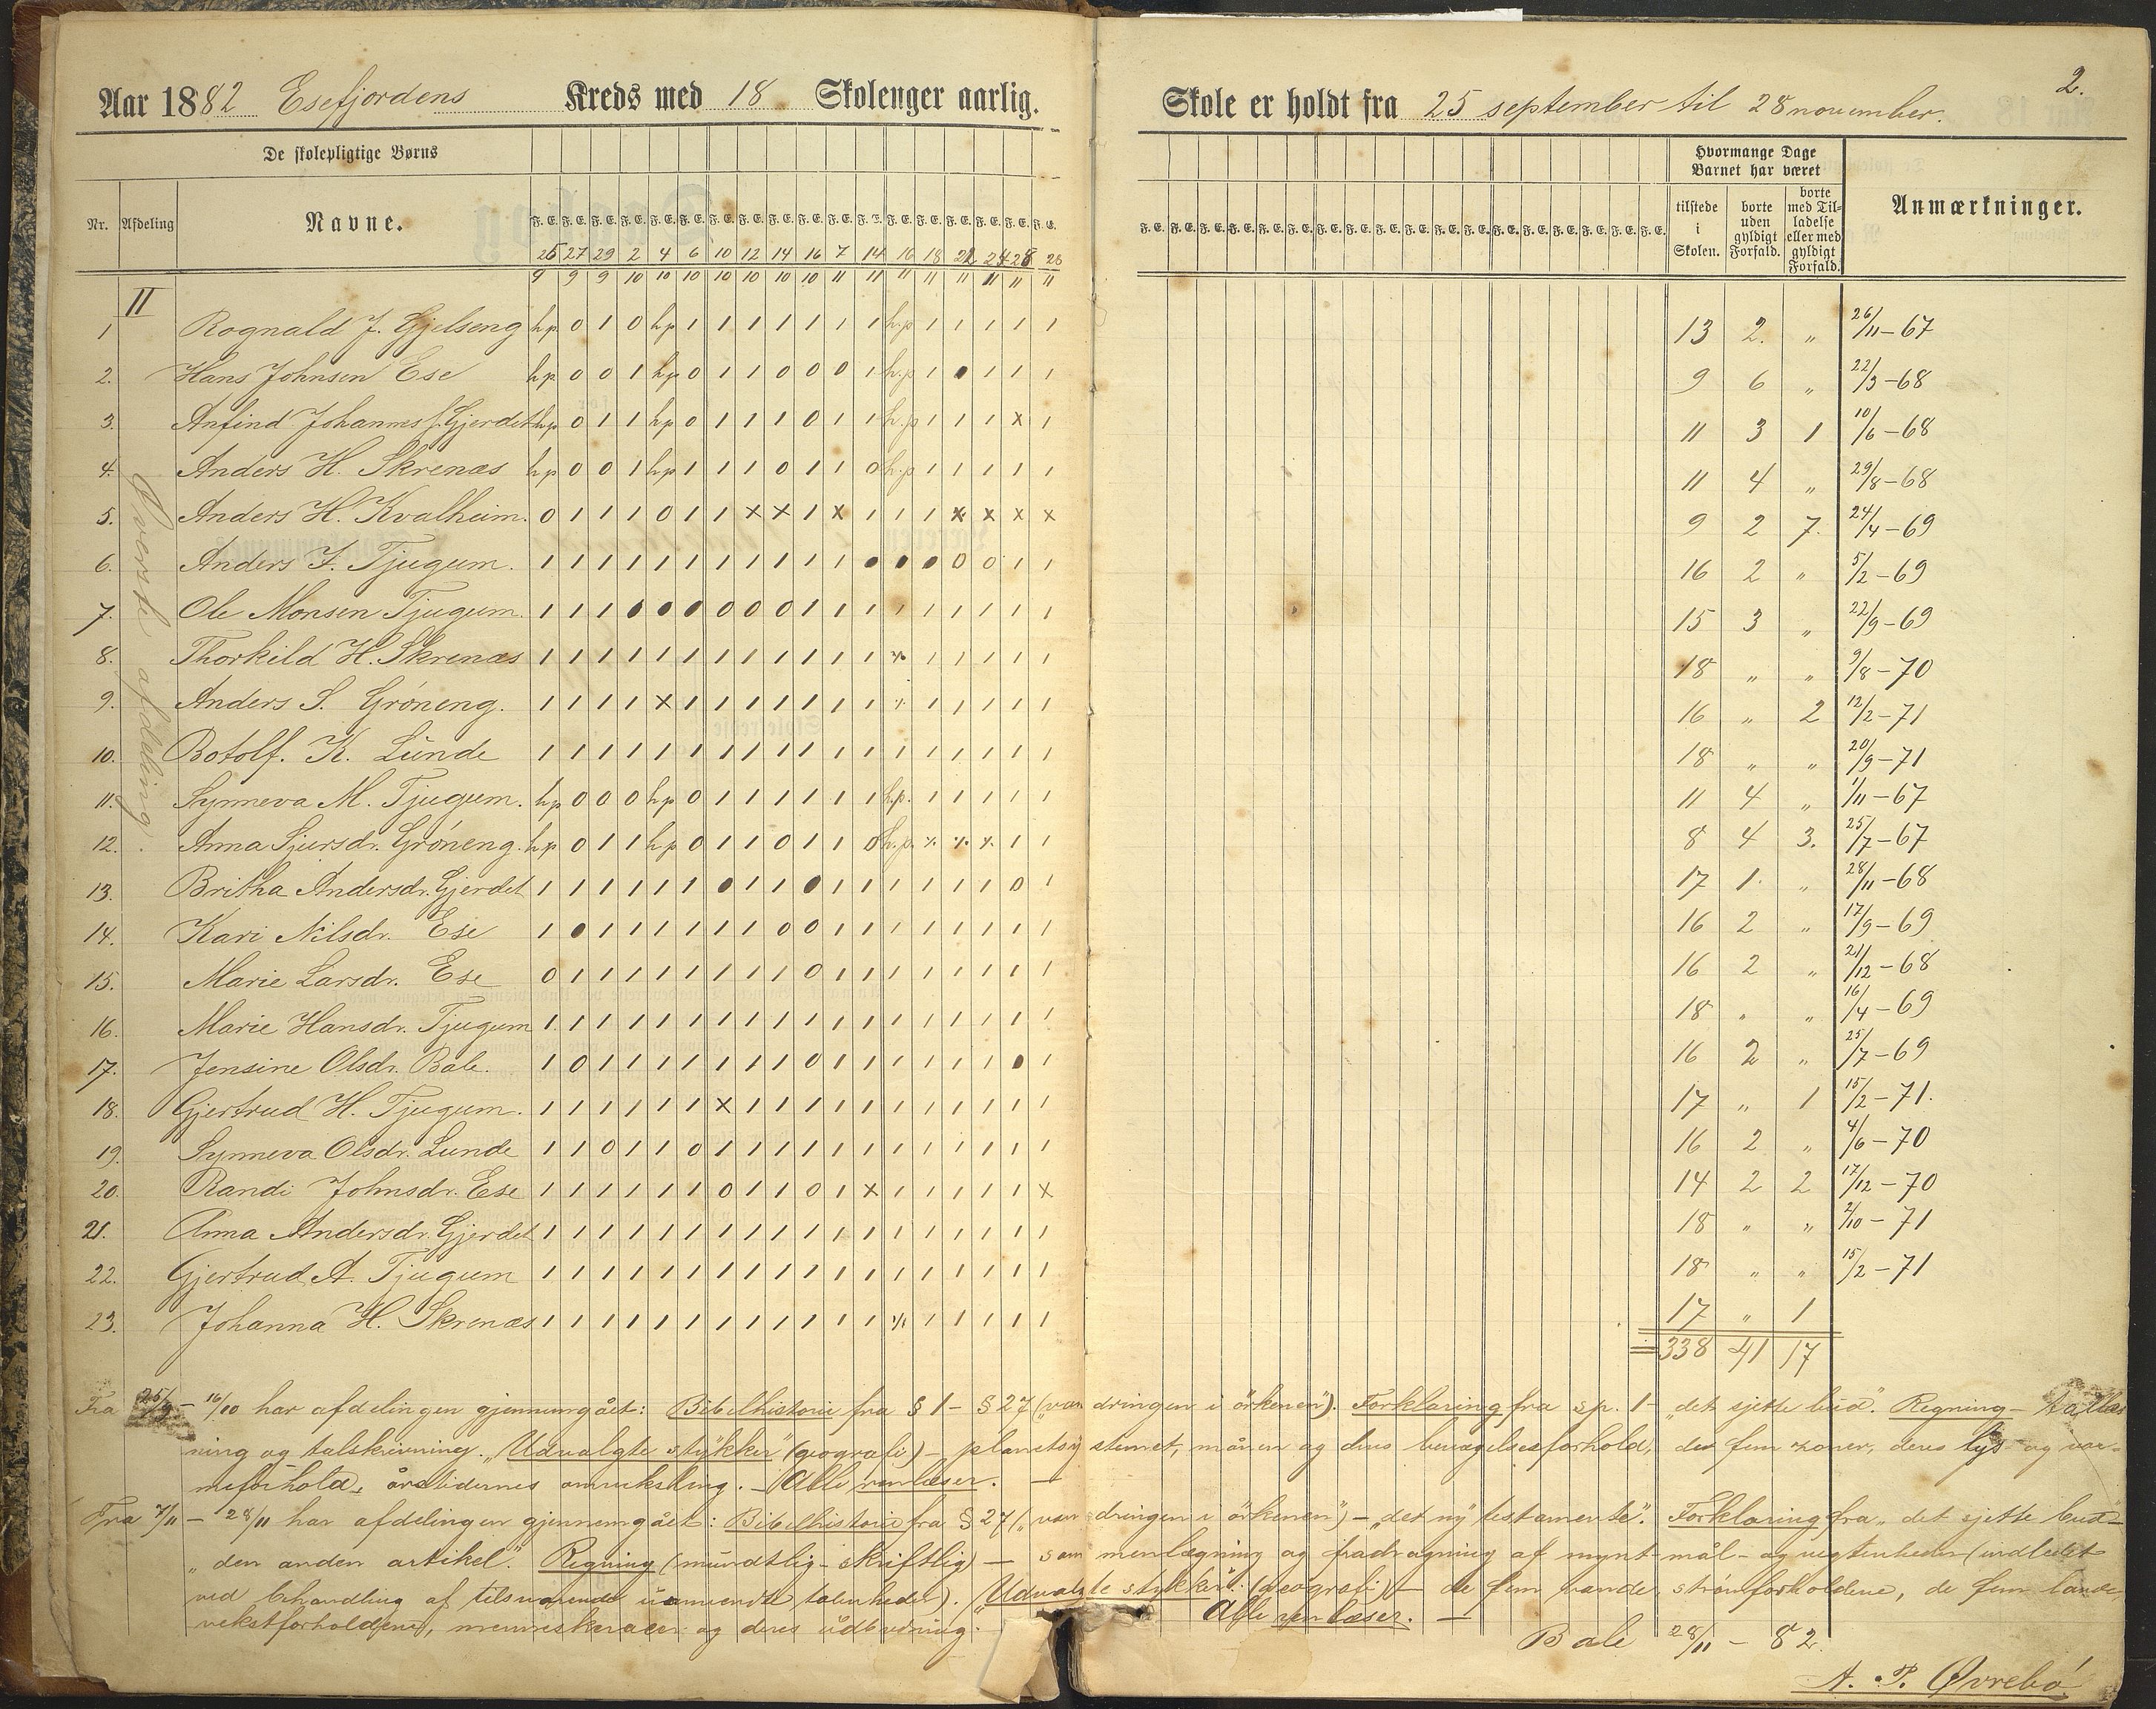 2.
Aar 1882 Esefjordens Kreds med 18 Skolenger aarlig.
Skole er holdt fra 25 september til 28 november.
De skolepligtige Børns
Hvormange Dage Barnet har været
Nr. Afdeling Navne.
F. E. F. E. F. E. F. E. F. E. F. E. F. E. F. E. F. E. F. E. F. E. F. E. F. E. F. E. F. E. F. E. F. E. F. E.
tilstede i Skolen. borte uden gyldigt Forfald. borte med Tilladelse eller med gyldigt Forfald. Anmærkninger.
25 27 29 2 4 6 10 12 14 16 7 14 16 18 21 24 28 28
9 9 9 10 10 10 10 10 10 10 11 11 11 11 11 11 11 11
II
Øverste afdeling.
1 Rognald J. Gjelseng hp. 0 1 0 hp 1 1 1 1 1 1 1 h.p 1 1 1 1 1 13 2. " 26/11-67
2. Hans Johnsen Ese hp. 0 0 1 hp 0 1 1 0 0 0 1 h.p 1 ● 1 1 1 9 6 " 22/3-68
3. Anfind Johannes f. Gjerdet hp 0 1 1 hp 0 1 1 1 0 1 1 h.p 1 1 1 x 1 11 3 1 10/6-68
4. Anders H. Skrenæs hp 0 0 1 hp 1 1 1 0 1 1 0 h.p 1 1 1 1 1 11 4 " 29/8-68
5. Anders H. Kvalheim. 0 1 1 1 0 1 1 x x 1 x 1 1 1 x x x x 9 2 7. 24/4-69
6. Anders J. Tjugum. 1 1 1 1 1 1 1 1 1 1 1 ● ● ● 0 0 1 1 16 2 " 5/2-69
7. Ole Monsen Tjugum. 1 1 1 ● ● ● 0 0 0 1 1 1 1 1 1 1 1 1 15 3 " 22/9-69
8. Thorkild H. Skrenæs 1 1 1 1 1 1 1 1 1 1 1 1 ./. 1 1 1 1 1 18 " " 9/8-70
9. Anders S. Gróneng. 1 1 1 1 x 1 1 1 1 1 1 1 ./. 1 1 1 1 1 16 " 2 12/2-71
10. Botolf. K. Lunde 1 1 1 1 1 1 1 1 1 1 1 1 1 1 1 1 1 1 18 " " 20/9-71
11. Synneva M. Tjugum. hp 0 0 0 hp 0 1 1 1 1 1 1 h.p. 1 1 1 1 1 11 4 " 1/11-67
12. Anna Sjursdr. Gróneng. hp 0 1 1 hp 0 1 1 0 1 1 0 h.p. ./. ./. ./. 1 1 8 4 3. 25/7-67
13. Britha Andersdr. Gjerdet 1 1 1 1 1 1 ● 1 1 ● 1 1 1 1 1 1 0 1 17 1. " 28/11-68
14. Kari Nilsdr. Ese 1 ● 1 1 1 1 1 1 0 0 1 1 1 1 1 1 1 1 16 2 " 17/9-69
15. Marie Larsdr. Ese 0 1 1 1 1 1 1 1 1 0 1 1 1 1 1 1 1 1 16 2 " 21/12-68
16. Marie Hansdr. Tjugum 1 1 1 1 1 1 1 1 1 1 1 1 1 1 1 1 1 1 18 " " 16/4-69
17. Jensine Olsdr. Bale. 1 0 1 1 1 1 1 1 1 0 1 1 1 1 1 1 ● 1 16 2 " 25/7-69
18. Gjertrud H. Tjugum. 1 1 1 1 1 1 x 1 1 1 1 1 1 1 1 1 1 1 17 " 1 15/2-71.
19. Synneva Olsdr. Lunde 1 1 0 1 1 0 1 1 1 1 1 1 1 1 1 1 1 1 16 2 " 4/6-70
20. Randi Johnsdr. Ese 1 1 1 1 1 1 0 1 1 0 1 x 1 1 1 1 1 x 14 2 2 17/12-70
21. Anna Andersdr. Gjerdet 1 1 1 1 1 1 1 1 1 1 1 1 1 1 1 1 1 1 18 " " 2/10-71
22. Gjertrud A. Tjugum 1 1 1 1 1 1 1 1 1 1 1 1 1 1 1 1 1 1 18 " " 15/2-71
23. Johanna H. Skrenæs 1 1 1 1 1 1 1 1 1 1 1 1 ./. 1 1 1 1 1 17 " 1
338 41 17
Fra 25/9 - 16/10 har afdelingen gjennemgået: Bibelhistorie fra § 1 - § 27 ("vandringen i örkenen"). Forklaring fra sp. 1 - "det sjette bud". Regning - tallæs-
ning og talskrivning. "Udvalgte stykker" (geografi) - planetsystemet, månen og dens bevægelsesforhold, de fem zoner, deres lys og var-
meforhold, årstidernes omveksling. - Alle renlæser. -
Fra 7/11 - 28/11 har afdelingen gjennemgået: Bibelhistorie fra § 27 ("vandringen i örkenen") - "det ny testamente". Forklaring fra "det sjette bud" -
"den anden artikel". Regning (mundtlig - skriftlig) - sammenlægning og fradragning af mynt- mål- og vegtenheder (indledet
ved behandling af tilsvarende ubenævnte talenheder). "Udvalgte stykker" (geografi) - de fem vande, strömforholdene, de fem lande,
vekstforholdene, menneskeracer og deres udbredning. Alle renlæser. -
Bale 28/11 - 82.
A. P. Øvrebó